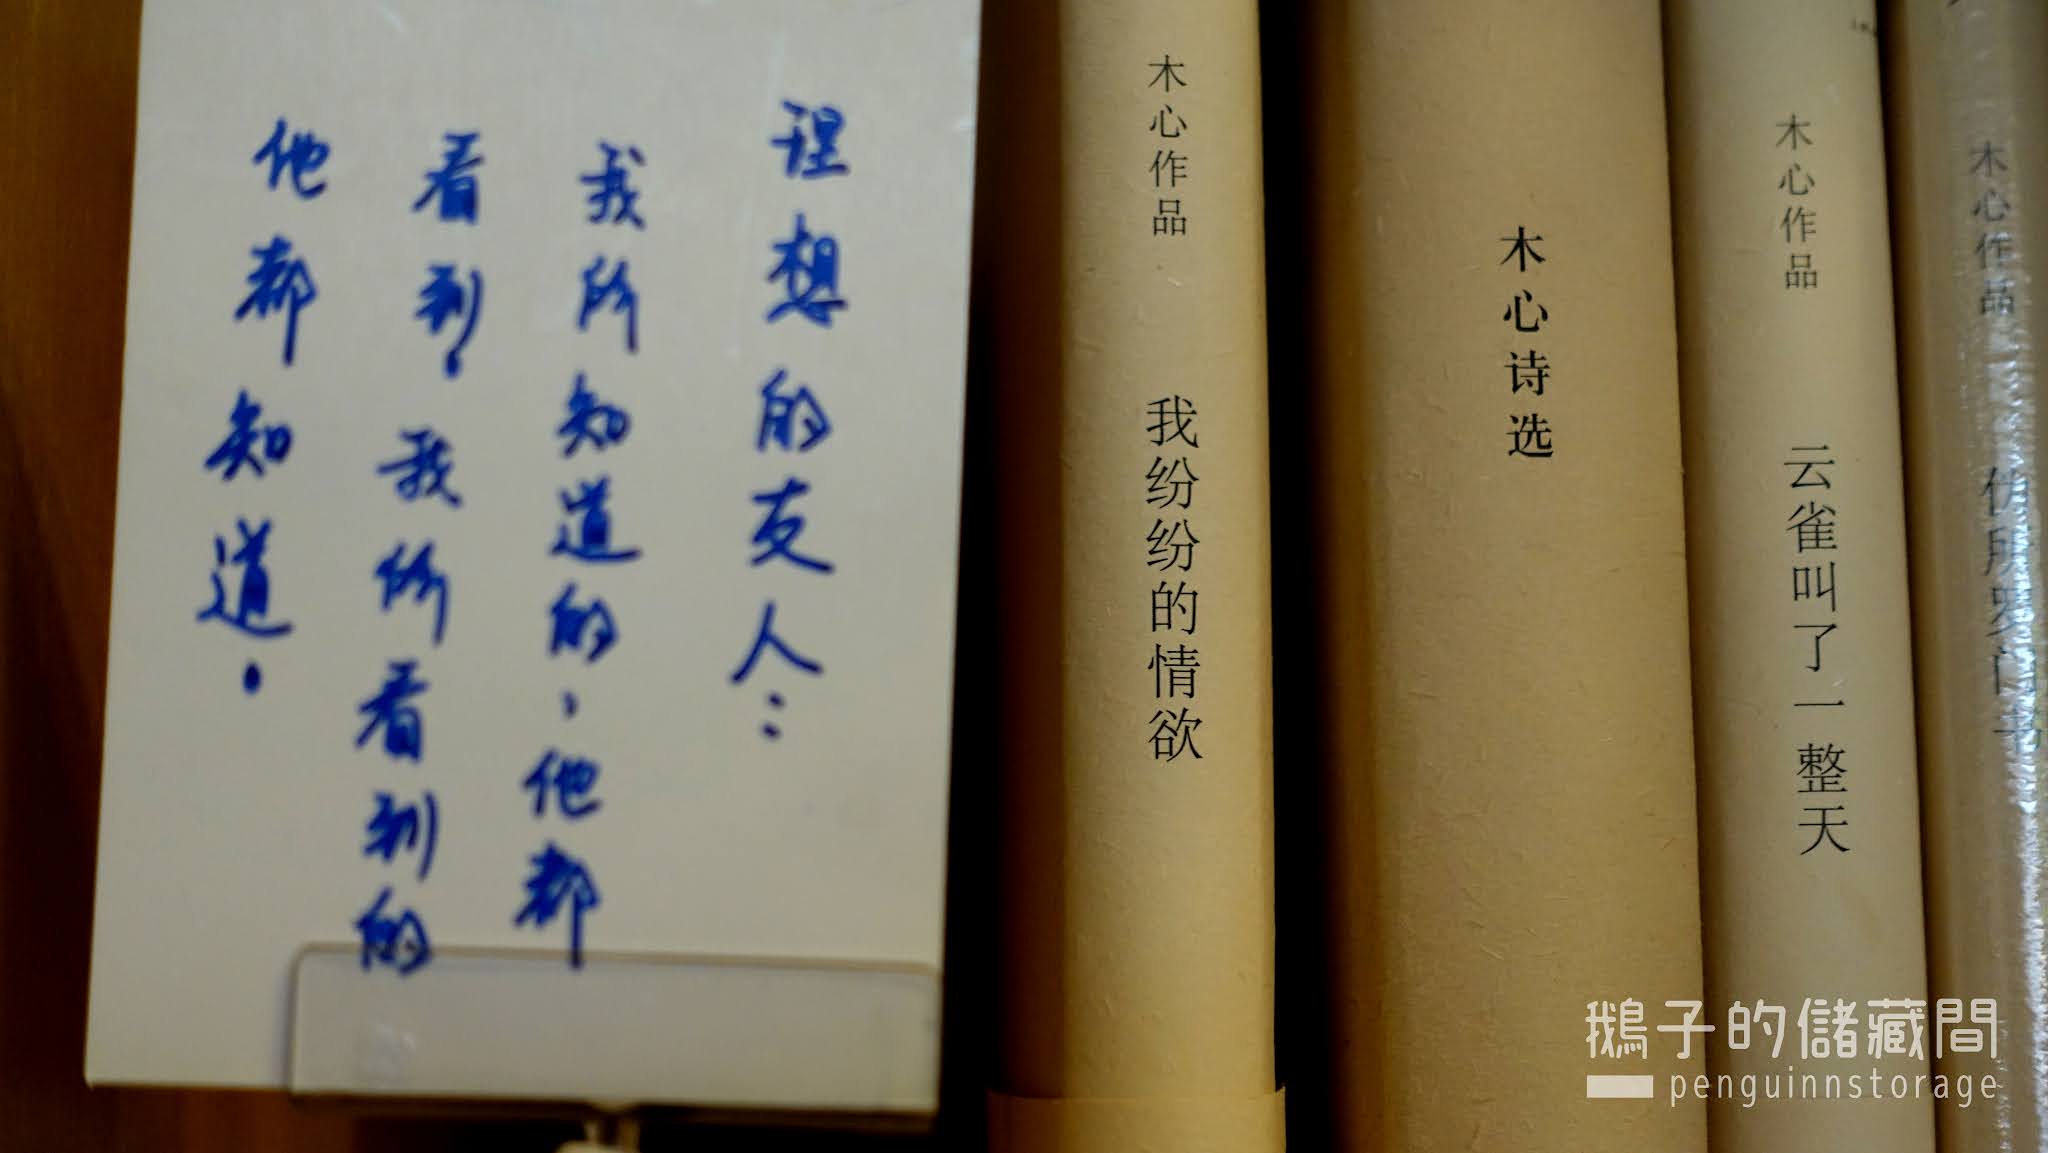 理想的友人：
我所知道的，他都
看到。我所看到的
他都知道。
木心作品 我纷纷的情欲
木心诗选
木心作品 云雀叫了一整天
木心作品 伪所罗门书
鵝子的儲藏間
penguinnstorage